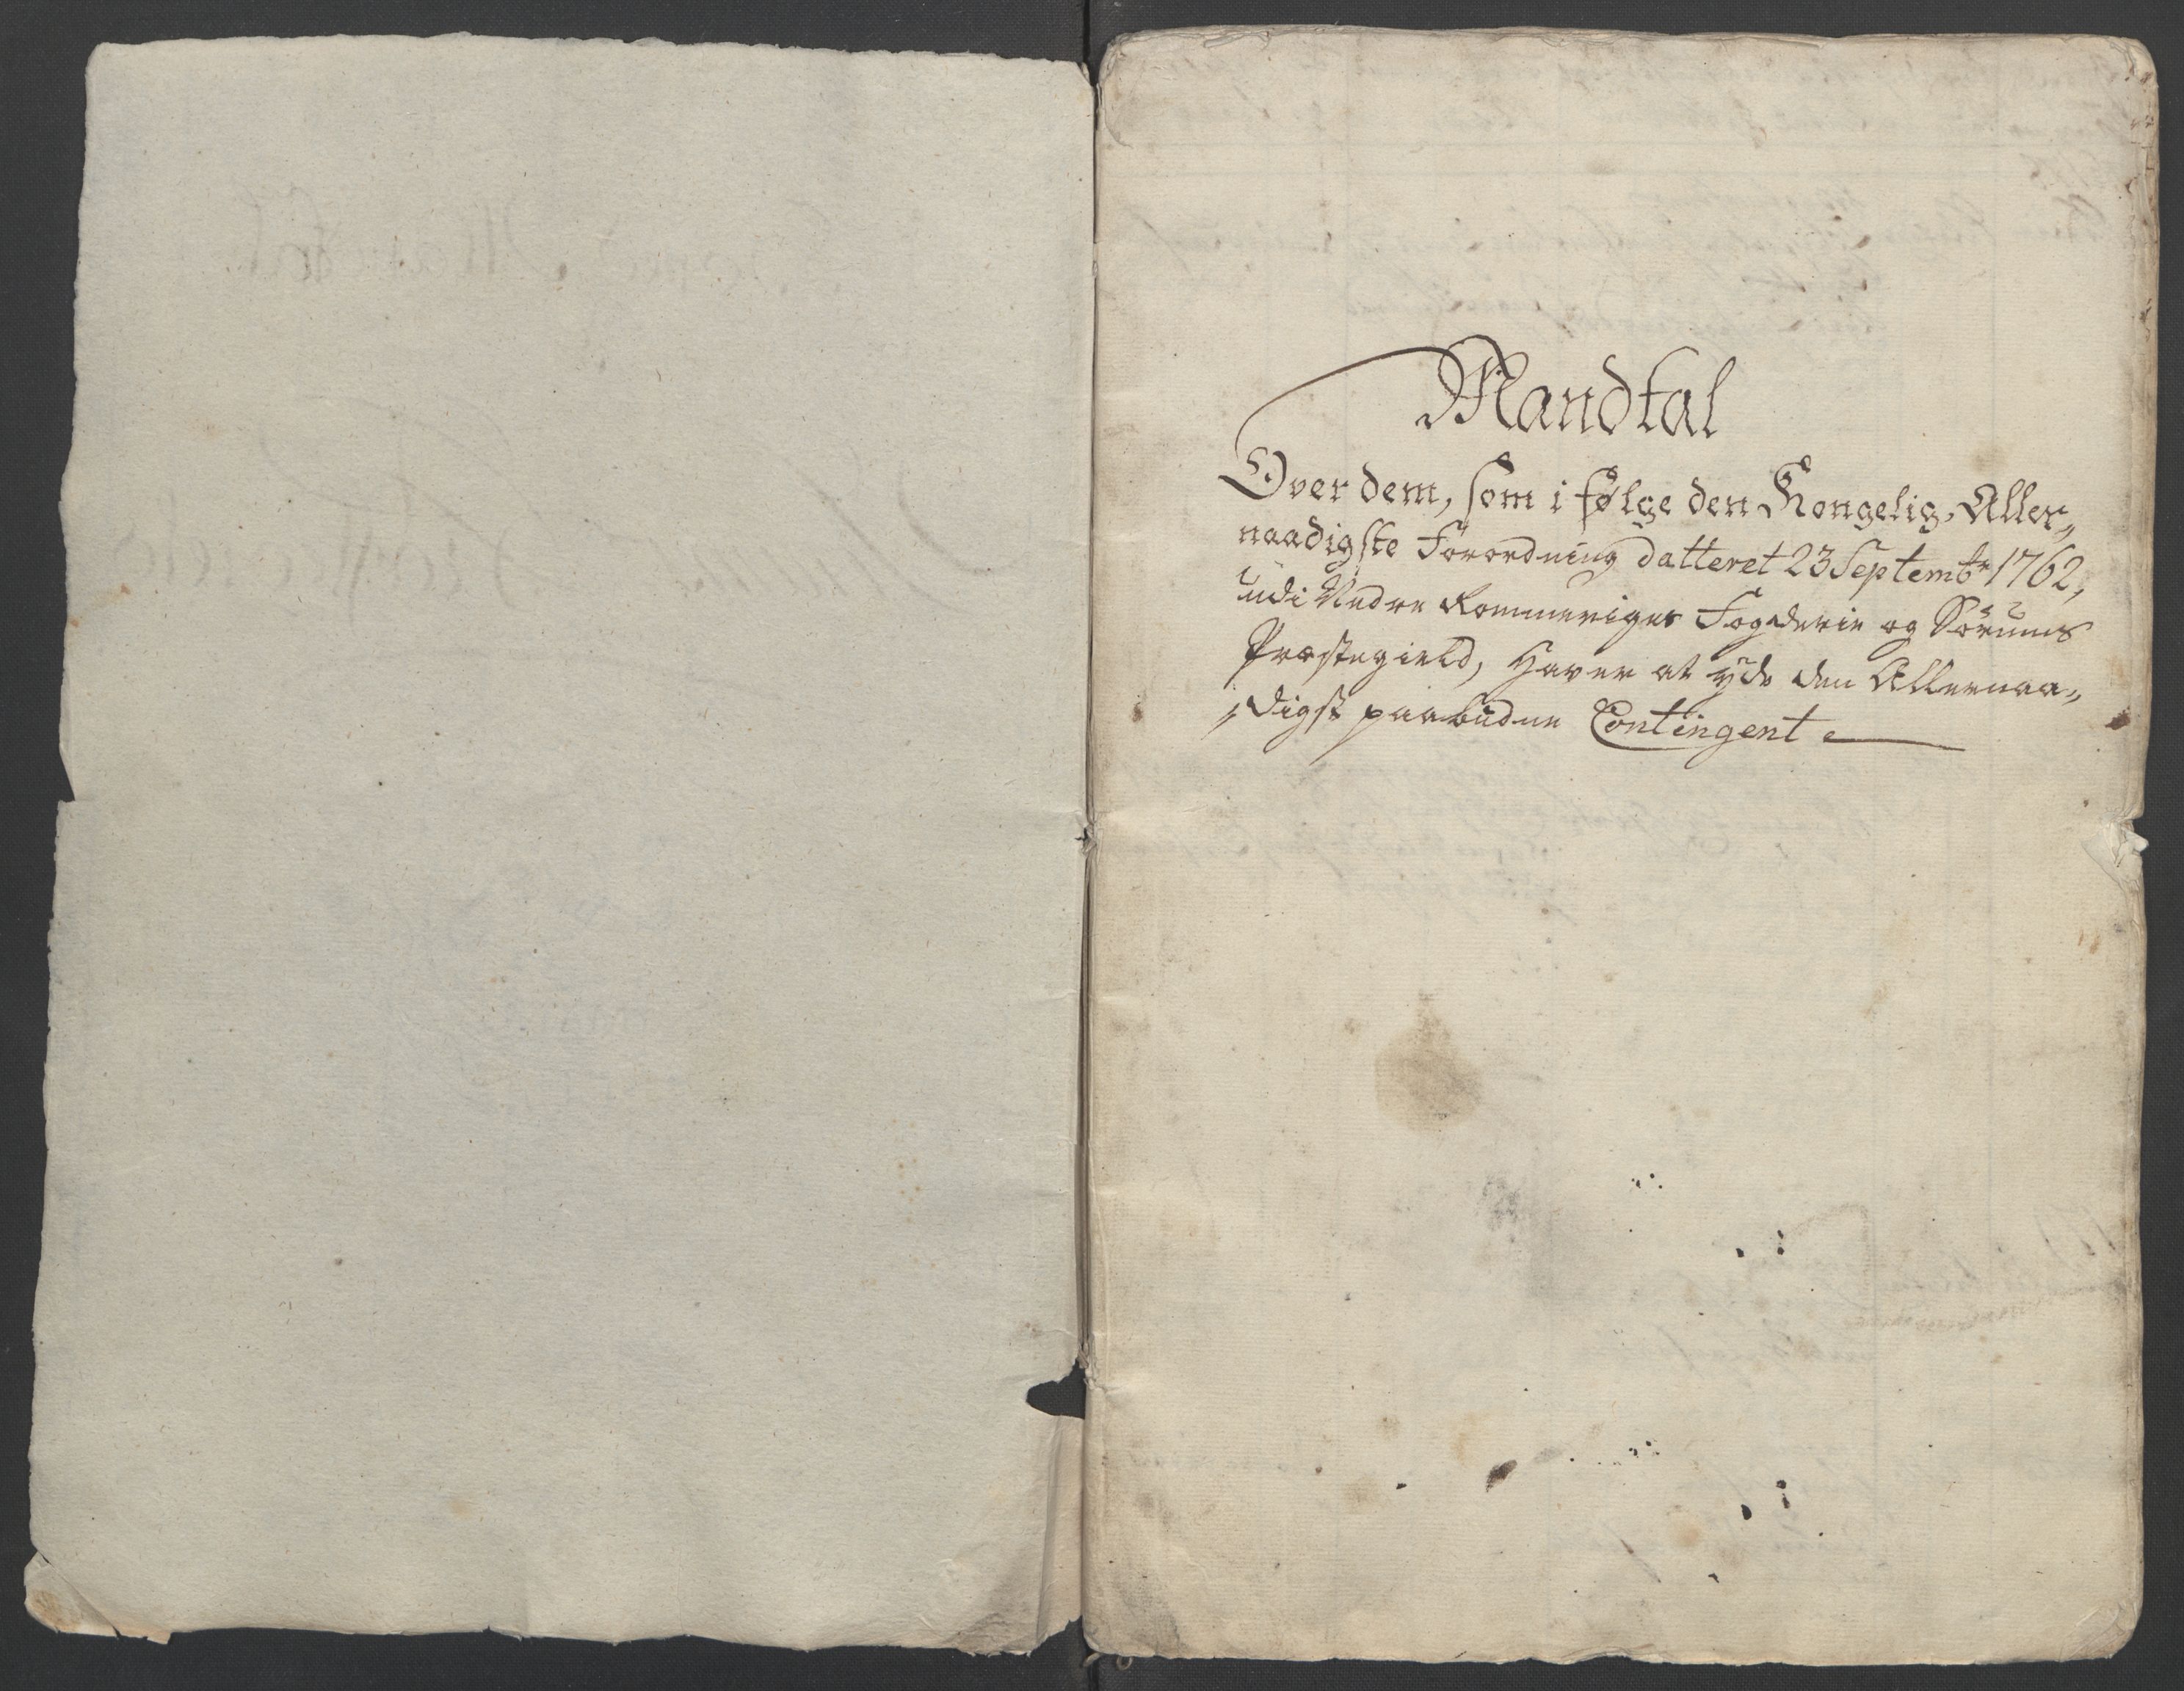 Mandtal
Over dem, som i følge den Kongelig. Aller„
naadigste Forordning datteret 23 Septembr 1762,
udi Nedre Rommeriges Fogderie og Sørums
Præstegield, haver at yde den Allernaa„
„digst paabudne Contingent